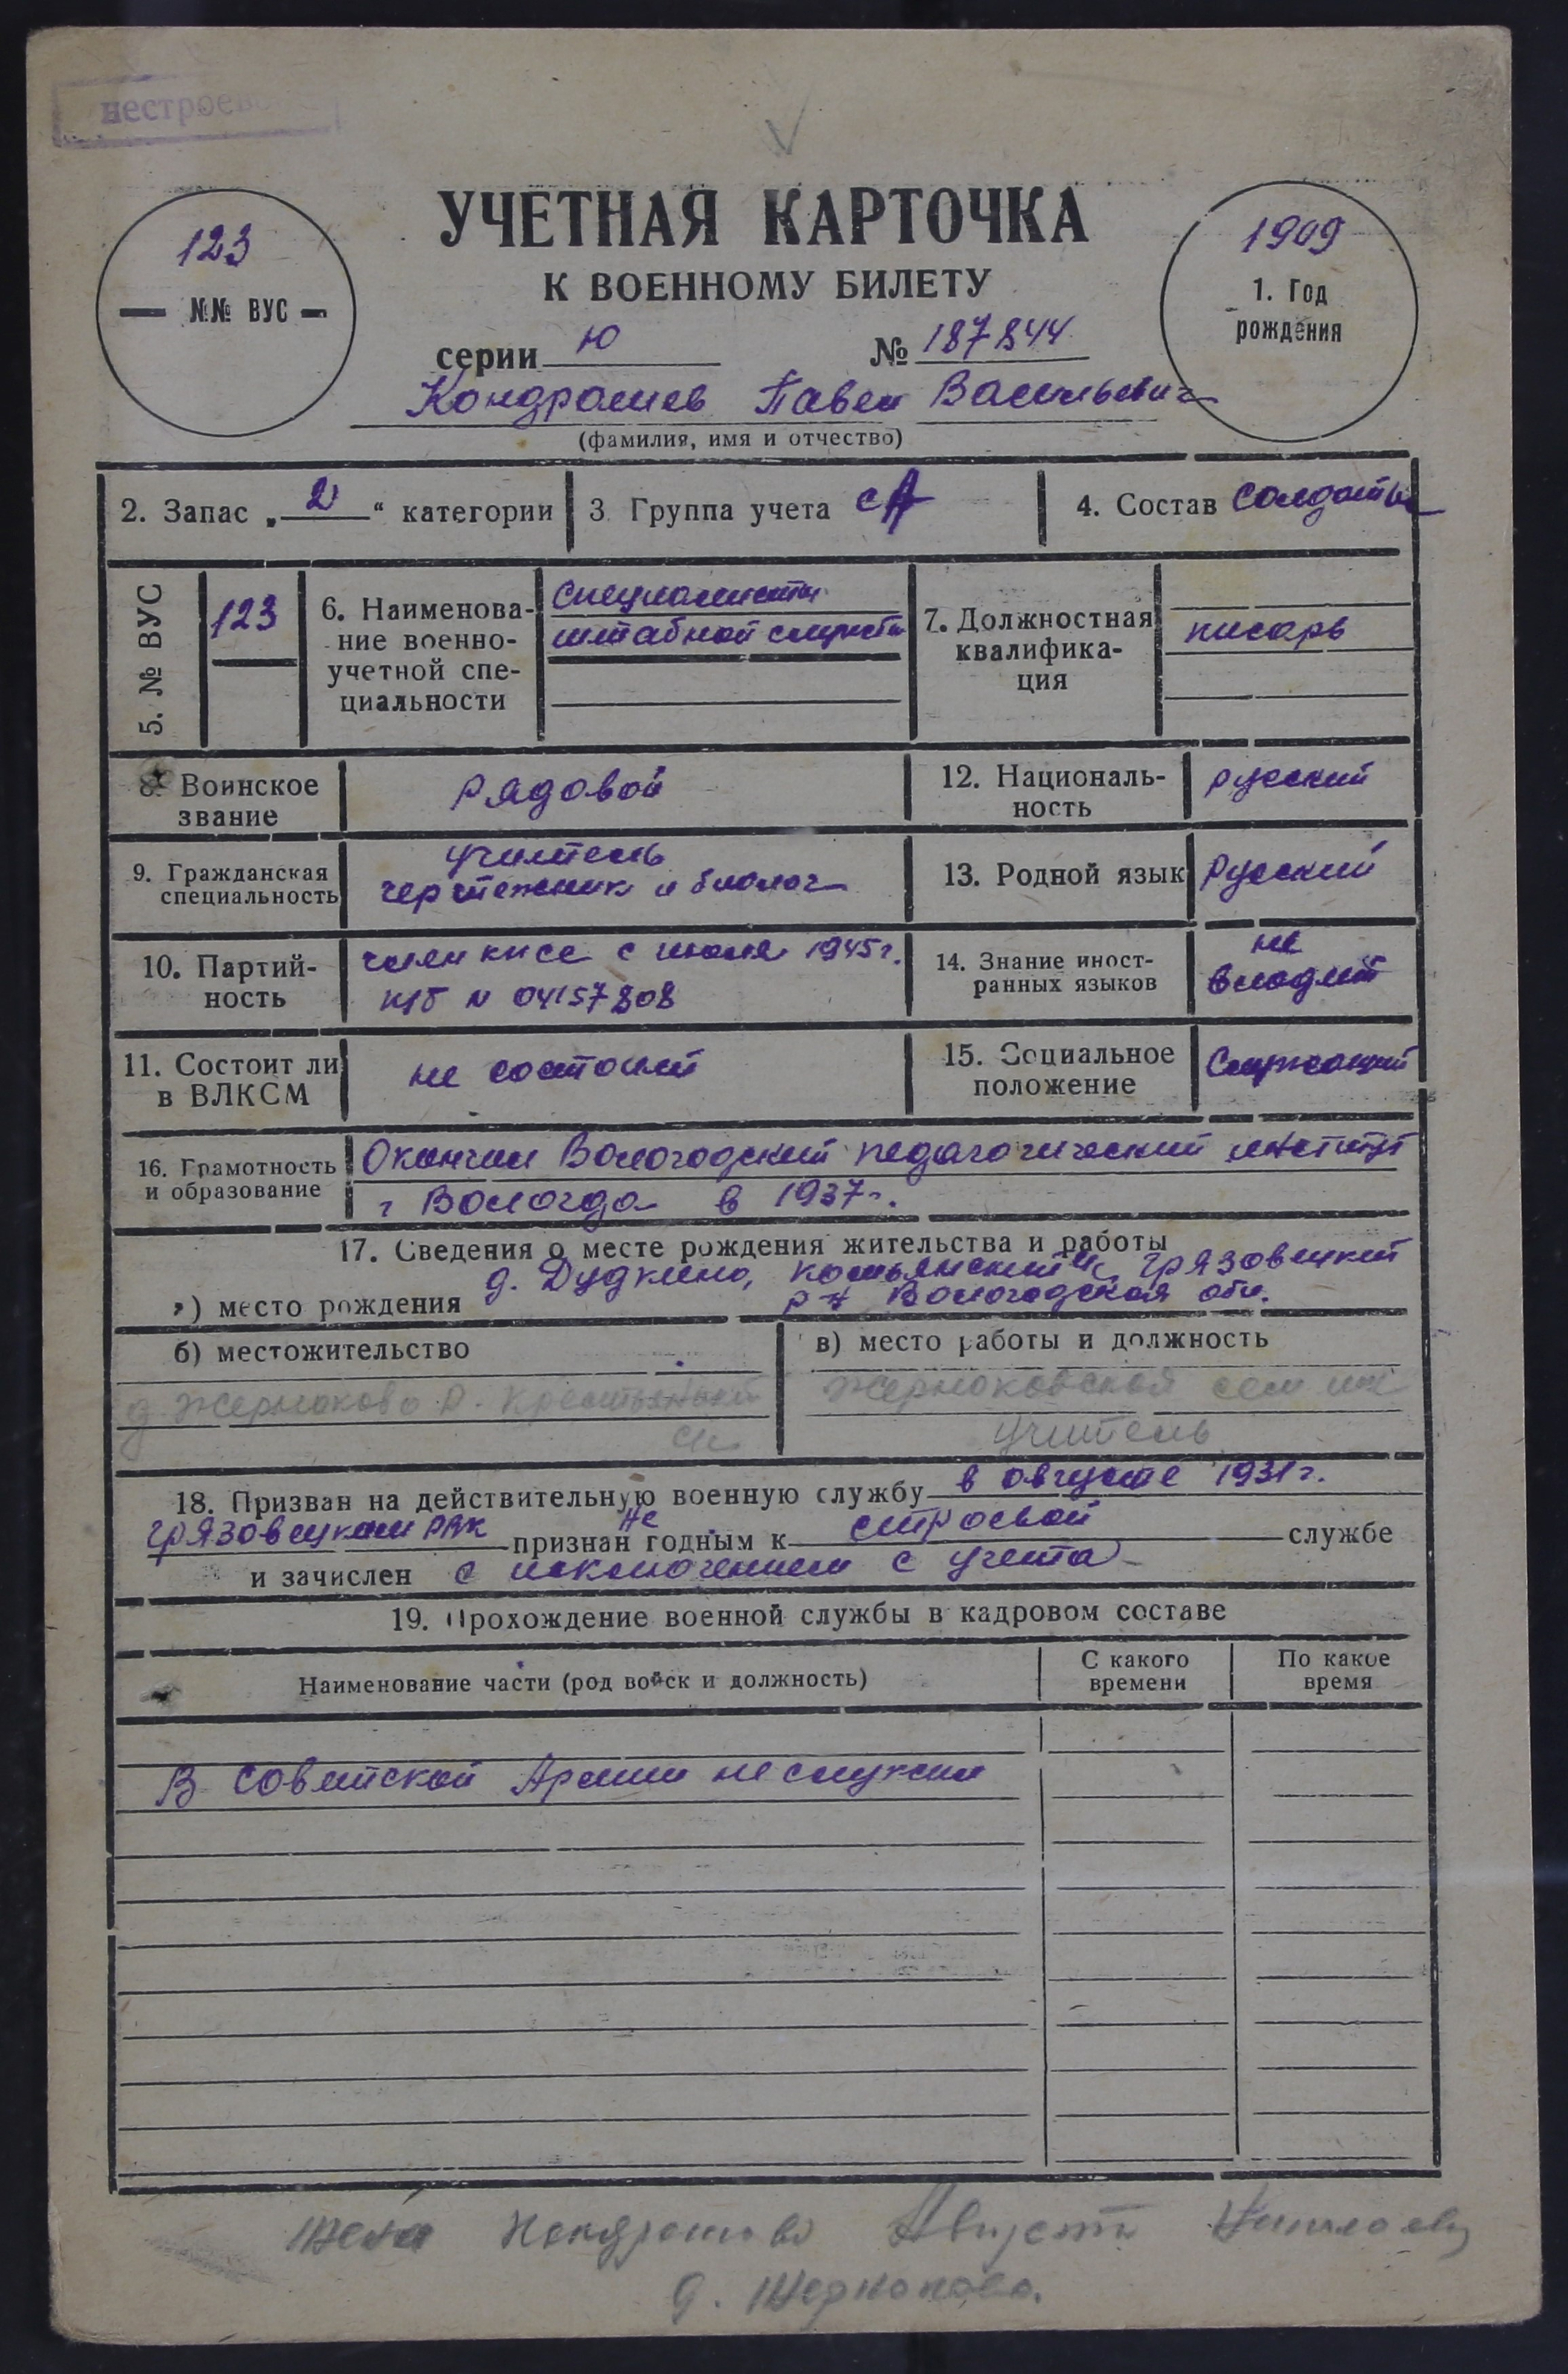 нестроевой
УЧЕТНАЯ КАРТОЧКА
К ВОЕННОМУ БИЛЕТУ
123
№№ ВУС
1909
1. Год
рождения
серии Ю № 187844
Кондрашев Павел Васильевич
(фамилия, имя и отчество)
2. Запас „2“ категории
3 Группа учета СА
4. Состав Солдаты
5. № ВУС
123
6. Наименова-
ние военно-
учетной спе-
циальности
Специалисты
штабной службы
7. Должностная
квалифика-
ция
писарь
8. Воинское
звание
рядовой
12. Националь-
ность
русский
9. Гражданская
специальность
учитель
чертежник и биолог
13. Родной язык
Русский
10. Партий-
ность
член кпсс с июля 1945г.
п/б № 04157808
14. Знание иност-
ранных языков
не
владеет
11. Состоит ли
в ВЛКСМ
не состоит
15. Социальное
положение
Служащий
16. Грамотность
и образование
Окончил Вологодский педагогический институт
г Вологда в 1937г.
17. Сведения о месте рождения жительства и работы
а) место рождения д. Дудкино, с/с, Грязовецкий
р-н Вологодская обл.
б) местожительство
д Жерноково Р.
в) место работы и должность
Жерноковская сем шк
учитель
18. Призван на действительную военную службу в августе 1931г.
Грязовецким РВК не признан годным к строевой службе
и зачислен с исключением с учета
19. Прохождение военной службы в кадровом составе
Наименование части (род войск и должность)
С какого
времени
По какое
время
В Советской Армии не служил
Жена Кондрашева Августа Николаевна
д. Жерноково.